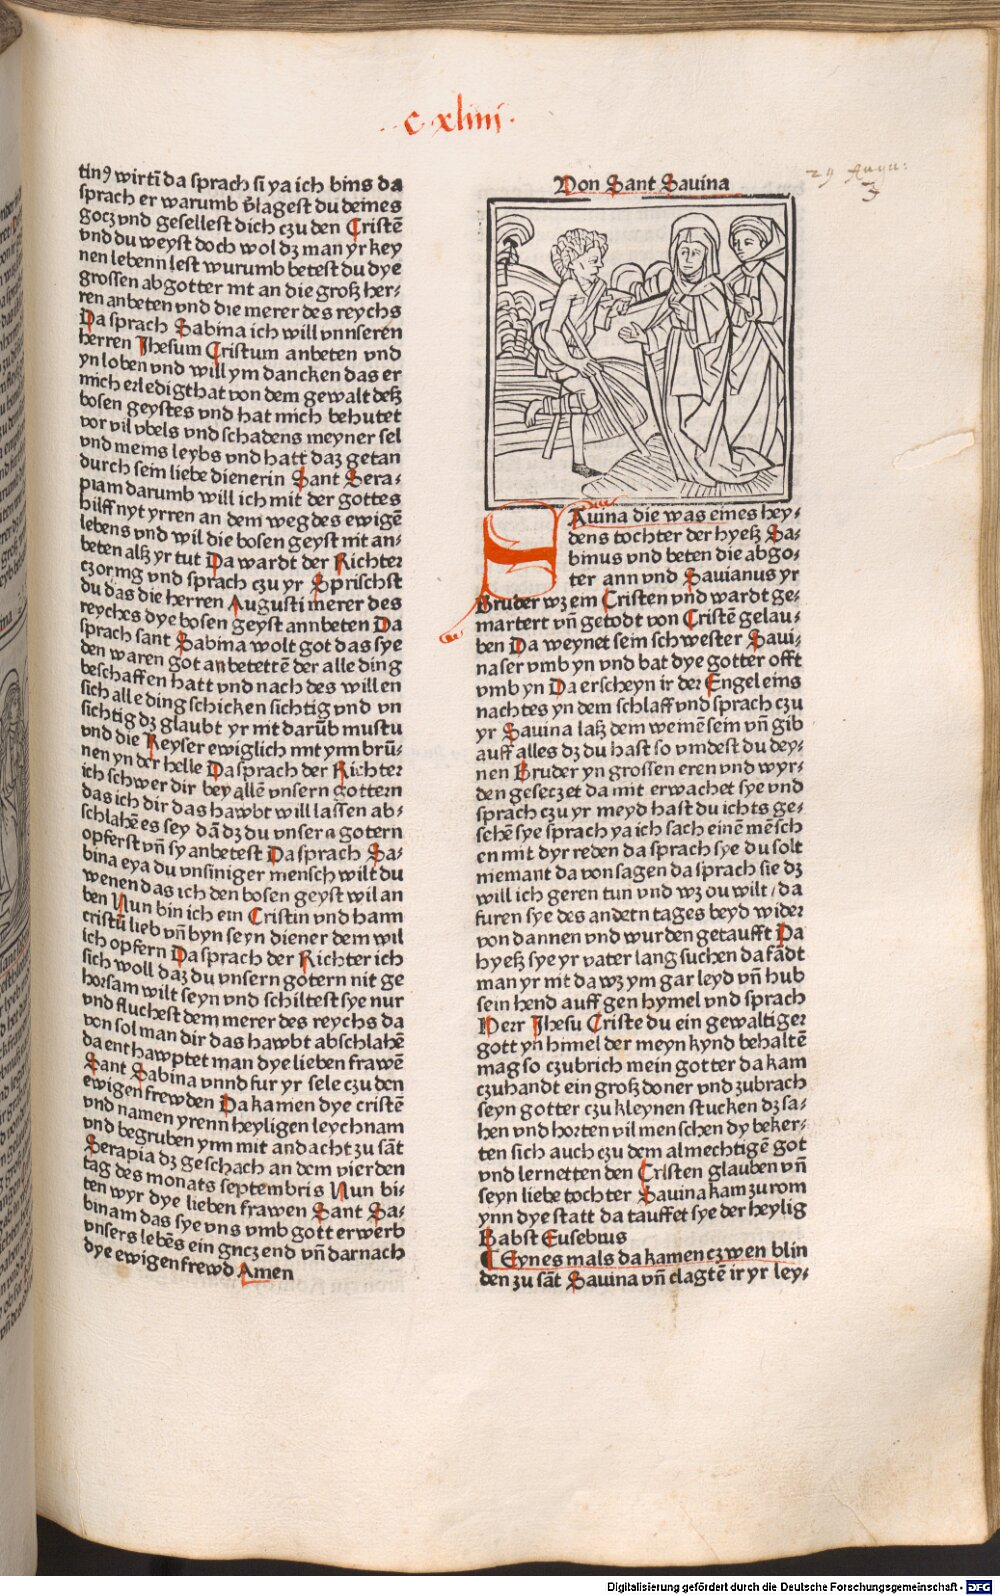 c·xliiij·
tinꝰ wirtī da sprach si ya ich bins da
sprach er warumb v̄lagest du deines
gocz vnd gesellest dich czu den Cristē
vnd du weyst doch wol dz man yr key
nen lebenn lest wurumb betest du dye
grossen abgotter nit an die groß her-
ren anbeten vnd die merer des reychs
Da sprach Sabina ich will vnnseren
herren Jhesum Cristum anbeten vnd
yn loben vnd will ym dancken das er
mich erledigt hat von dem gewalt deß
bosen geystes vnd hat mich behutet
vor vil vbels vnd schadens meyner sel
vnd meins leybs vnd hatt daz getan
durch sein liebe dienerin Sant Sera-
piam darumb will ich mit der gottes
hilff nyt yrren an dem weg des ewigē
lebens vnd wil die bosen geyst nit an-
beten alß yr tut Da wardt der Richter
czornig vnd sprach czu yr Sprischst
du das die herren Augusti merer des
reyches dye bosen geyst annbeten Da
sprach sant Sabina wolt got das sye
den waren got anbetettē der alle ding
beschaffen hatt vnd nach des willen
sich alle ding schicken sichtig vnd vn
sichtig dz glaubt yr nit darūb mustu
vnd die Keyser ewiglich mit ynn brū-
nen yn der helle Da sprach der Richter
ich schwer dir bey allē vnsern gottern
das ich dir das hawbt will lassen ab-
schlahē es sey dā dz du vnsern gotern
opferst vn̄ sy anbetest Da sprach Sa-
bina eya du vnsiniger mensch wilt du
wenen das ich den bosen geyst wil an
ben Nun bin ich ein Cristin vnd hann
cristū lieb vn̄ byn seyn diener dem wil
ich opfern Da sprach der Richter ich
sich woll daz du vnsern gotern nit ge
horsam wilt seyn vnd schiltest sye nur
vnd fluchest dem merer des reychs da
von sol man dir das hawbt abschlahē
da enthawptet man dye lieben frawē
Sant Sabina vnnd fur yr sele czu den
ewigen frewden Da kamen dye cristē
vnd namen yrenn heyligen leychnam
vnd begruben ynn mit andacht zu sāt
Serapia dz geschach an dem vierden
tag des monats septembris Nun bi-
ten wyr dye lieben frawen Sant Sa-
binam das sye vns vmb gott erwerb
vnsers lebēs ein gncz end vn̄ darnach
dye ewigen frewd Amen
Von Sant Savina
29 Augu:
3
SAuina die was eines hey-
dens tochter der hyeß Sa-
binus vnd beten die abgo-
ter ann vnd Sauianus yr
Bruder wz em Cristen vnd wardt ge-
martert vn̄ getodt von Cristē gelau-
ben Da weynet sein schwester Saui-
na ser vmb yn vnd bat dye gotter offt
vmb yn Da erscheyn ir der Engel eins
nachtes yn dem schlaff vnd sprach czu
yr Sauina laß dem weinē sein vn̄ gib
auff alles dz du hast so vindest du dey-
nen Bruder yn grossen eren vnd wyr-
den geseczet da mit erwachet sye vnd
sprach czu yr meyd hast du ichts ge-
sehē sye sprach ya ich sach einē mēsch
en mit dyr reden da sprach sye du solt
niemant da von sagen da sprach sie dz
will ich geren tun vnd wz ou wilt / da
furen sye des andern tages beyd wider
von dannen vnd wurden getaufft Da
hyeß sye yr vater lang suchen da fādt
man yr nit da wz ym gar leyd vn̄ hub
sein hend auff gen hymel vnd sprach
Herr Jhesu Criste du ein gewaltiger
gott yn himel der meyn kynd behaltē
mag so czubrich mein gotter da kam
czuhandt ein groß doner vnd zubrach
seyn gotter czu kleynen stucken dz sa-
hen vnd horten vil menschen dy beker-
ten sich auch czu dem almechtigē got
vnd lernetten den Cristen glauben vn̄
seyn liebe tochter Sauina kam zu rom
ynn dye statt da tauffet sye der heylig
Babst Eusebius
⸿ Eynes mals da kamen czwen blin
den zu sāt Sauina vn̄ clagtē ir yr ley-
Digitalisierung gefördert durch die Deutsche Forschungsgemeinschaft - DFG